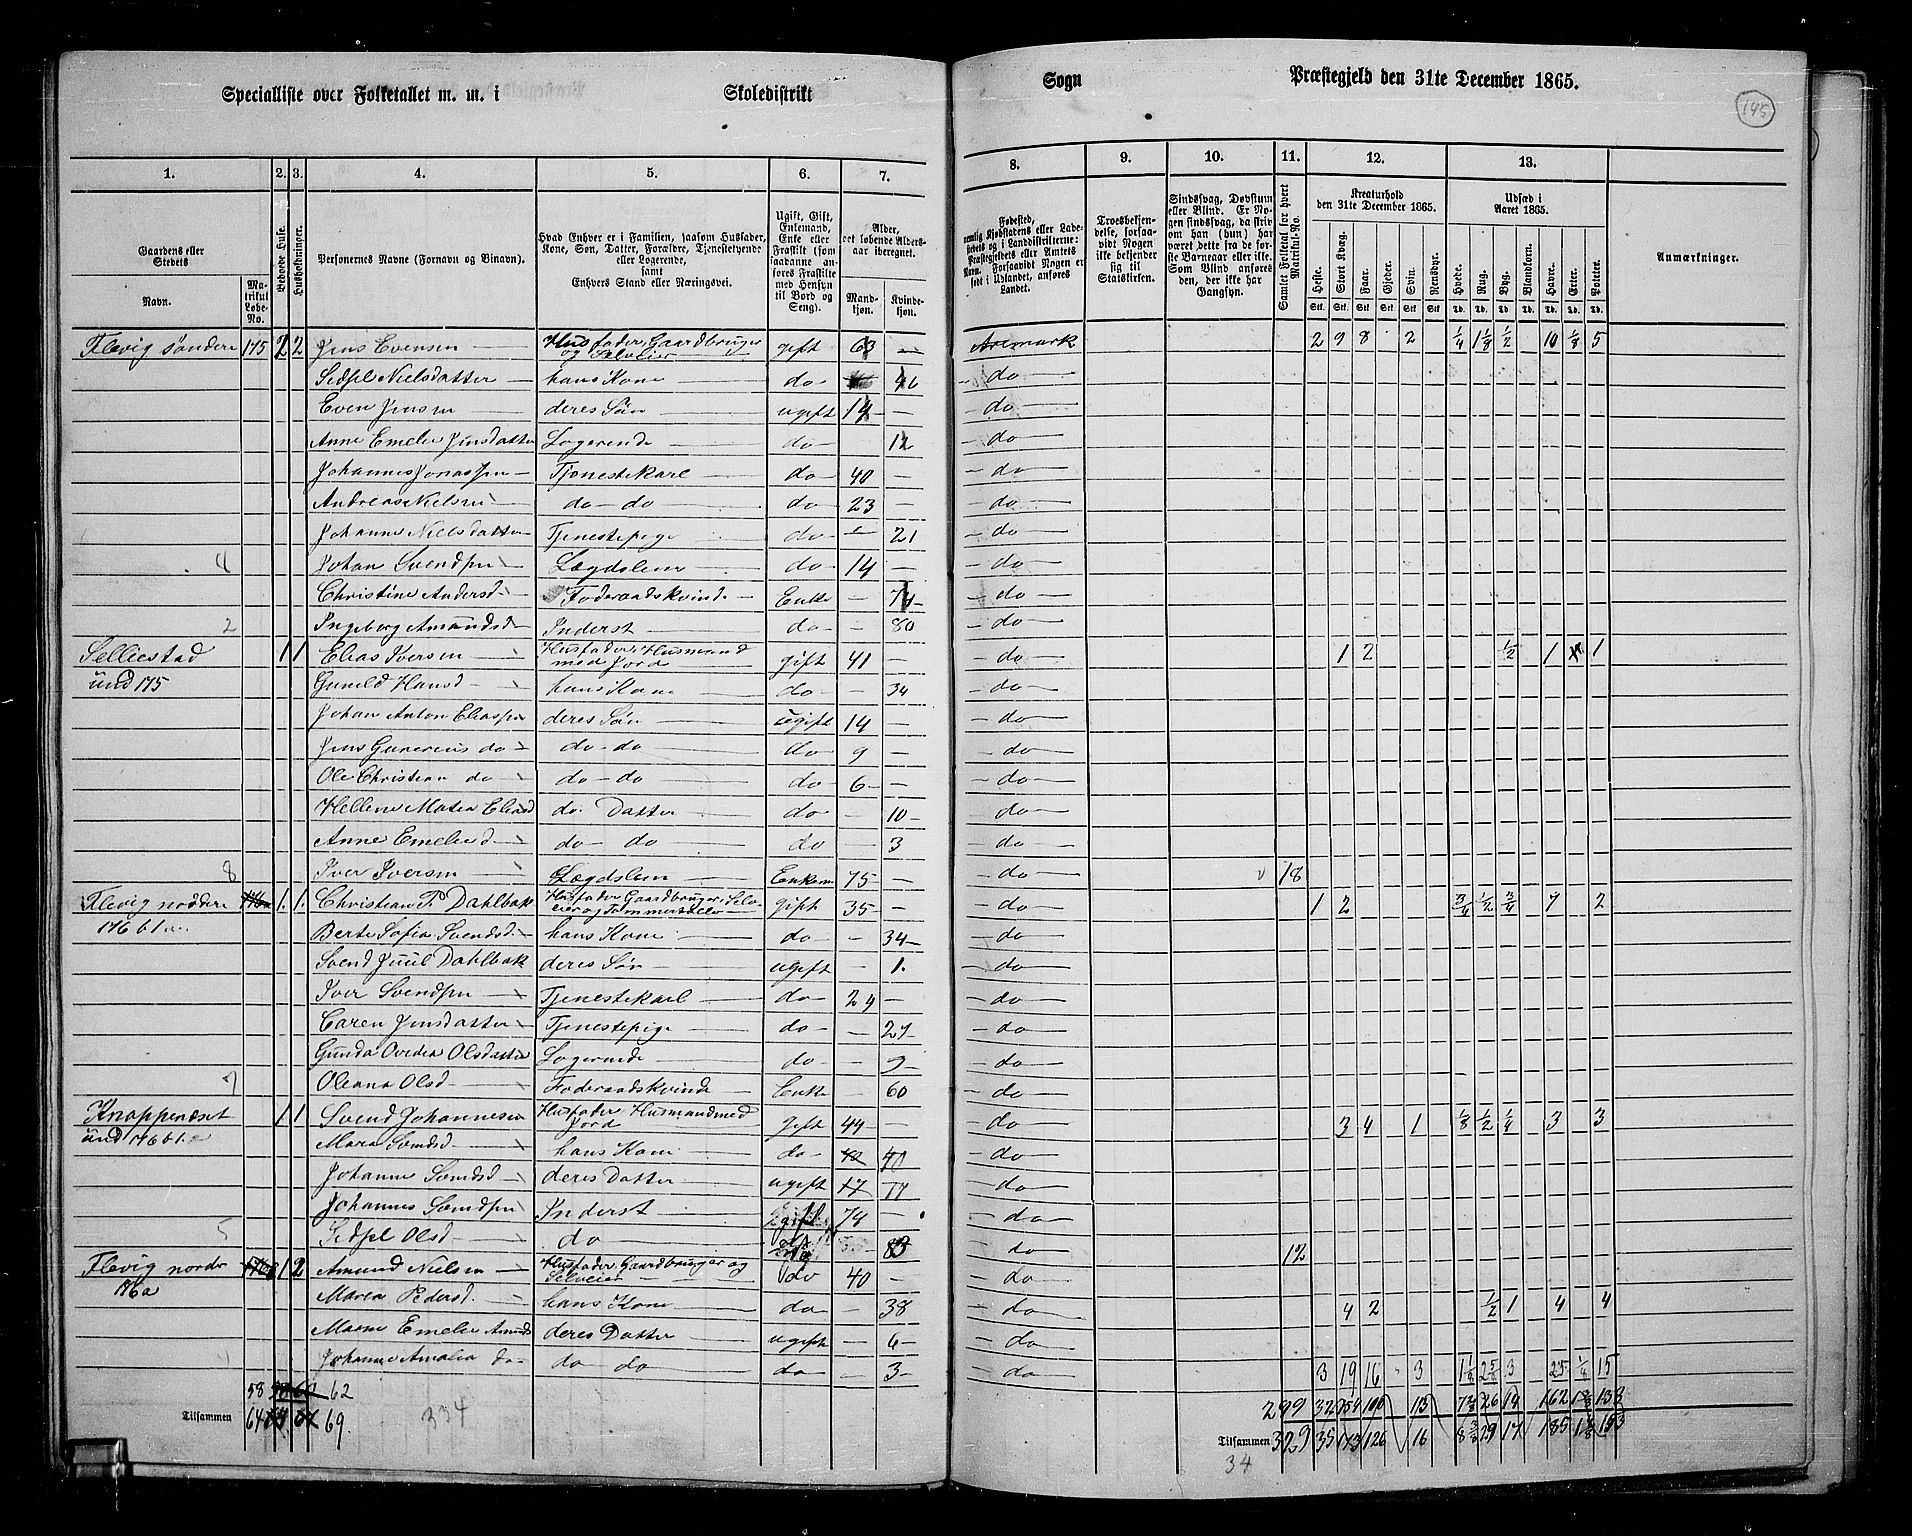 Specialliste over Folketallet m. m. i Skoledistrikt Sogn Præstegjeld den 31te December 1865.
145
1. 2. 3. 4. 5. 6. 7. 8. 9. 10. 11. 12. 13.
Gaardens eller Stedets
Navn.
Matrikul Løbe-No.
Beboede Huse.
Husholdninger.
Personernes Navne (Fornavn og Binavn).
Hvad Enhver er i Familien, saasom Husfader, Kone, Søn, Datter, Forældre, Tjenestetyende eller Logerende, samt Enhvers Stand eller Næringsvei.
Ugift, Gift, Enkemand, Enke eller Fraskilt (som saadanne anføres Fraskilte med Hensyn til Bord og Seng).
Alder, det løbende Aldersaar iberegnet.
Mandkjøn.
Kvindekjøn.
Fødested, nemlig Kjøbstadens eller Ladestedets og i Landdistrikterne: Præstegjeldets eller Amtets Navn. Forsaavidt Nogen er født i Udlandet, anføres Landet.
Troesbekjendelse, forsaavidt Nogen ikke bekjender sig til Statskirken.
Sindssvag, Døvstum eller Blind. Er Nogen sindssvag, da skrives om han (hun) har været dette fra de første Barneaar eller ikke. Som Blind anføres den, der ikke har Gangsyn.
Samlet Folketal for hvert Matrikul-No.
Kreaturhold den 31te December 1865.
Heste. Stort Kvæg. Faar. Gjeder. Svin. Rensdyr.
Udsæd i Aaret 1865.
Hvede. Rug. Byg. Blandkorn. Havre. Erter. Poteter.
Anmærkninger.
Flevig søndere 175 2 2 Jens Evensen Husfader, Gaardbruger og Selveier gift 63 — Aremark 2 9 8 2 1/4 1 1/8 1/2 10 1/8 5
Sedsel Nielsdatter — hans Kone — do — 46 — do —
Even Jensen — deres Søn ugift 14 — — do —
Anne Emelie Jensdatter Logerende — do — 12 — do —
Johannes Jonassen — Tjenestekarl — do 40 — — do —
Andreas Nielsen do — do do 23 — — do —
Johanne Nielsdatter Tjenestepige do — 21 — do —
4 Johan Svendsen Lægdslem — do 14 — — do —
Christine Andersd. Foderaadskvinde — Enke — 74 — do —
2 Ingeborg Amundsd. Inderst — do — 80 — do —
Selliestad 1 1 Elias Iversen — Husfader, Husmand med Jord gift 41 — — do — 1 2 1/2 1 1
und 175 Gunild Hansd. hans Kone — do — 34 — do —
Johan Anton Eliassen deres Søn ugift 14 — — do —
Jens Gunerius do — do — do do 9 — — do —
Ole Christian do — do — do do 6 — — do —
Hellene Matea Eliasd do. Datter do — 10 — do —
Anne Emelie d. — do do do — 3 — do —
8 Iver Iversen — Lægdslem — Enkem 75 — — do — 18
Flevig nordere 1 1 Christian P. Dahlbak Husfader, Gaardbruger, Selveier og gift 35 — — do — 1 2 3/4 1/2 3/4 7 2
176 b 1 Berte Sofia Svendsd. hans Kone do — 34 — do —
Svend Juul Dahlbak deres Søn ugift — 1. — do —
Iver Svendsen Tjenestekarl — do 24 — — do —
Caren Jensdatter Tjenestepige do — 27 — do —
Gunda Ovedia Olsdatter Logerende — do — 9 — do —
7 Oleana Olsd. Foderaadskvinde Enke 60 — do —
Knappenæset 1 1 Svend Johannesen Husfader, Husmand med Jord gift 44 — — do — 3 4 1 1/8 1/2 1/4 3 3
und 176 b 1. Maria Svendsd. hans Kone — do — 40 — do —
Johanne Svendsd. deres Datter ugift 17 17 — do —
Johannes Svendsen Inderst — 74 — — do —
5 Sedsel Olsd. do 83 — do 12
Flevig nordre 1 2 Amund Nielsen — Husfader, Gaardbruger og Selveier — do 40 — — do —
176a Maria Pedersd. hans Kone do — 38 — do — 4 2 1/2 1 4 4
Marne Emelie Amunds deres Datter — ugift — 6 — do —
4 Johanne Amalia do — do do — do — 3 — do — 3 19 16 3 1 1/8 2 5/8 3 25 1/4 15
58 62 299 32 154 110 13 7 2/8 26 14 162 1 3/8 138
Tilsammen 64 69. 334 Tilsammen 329 35 173 126 16 8 3/8 29 17 185 1 5/8 153
34